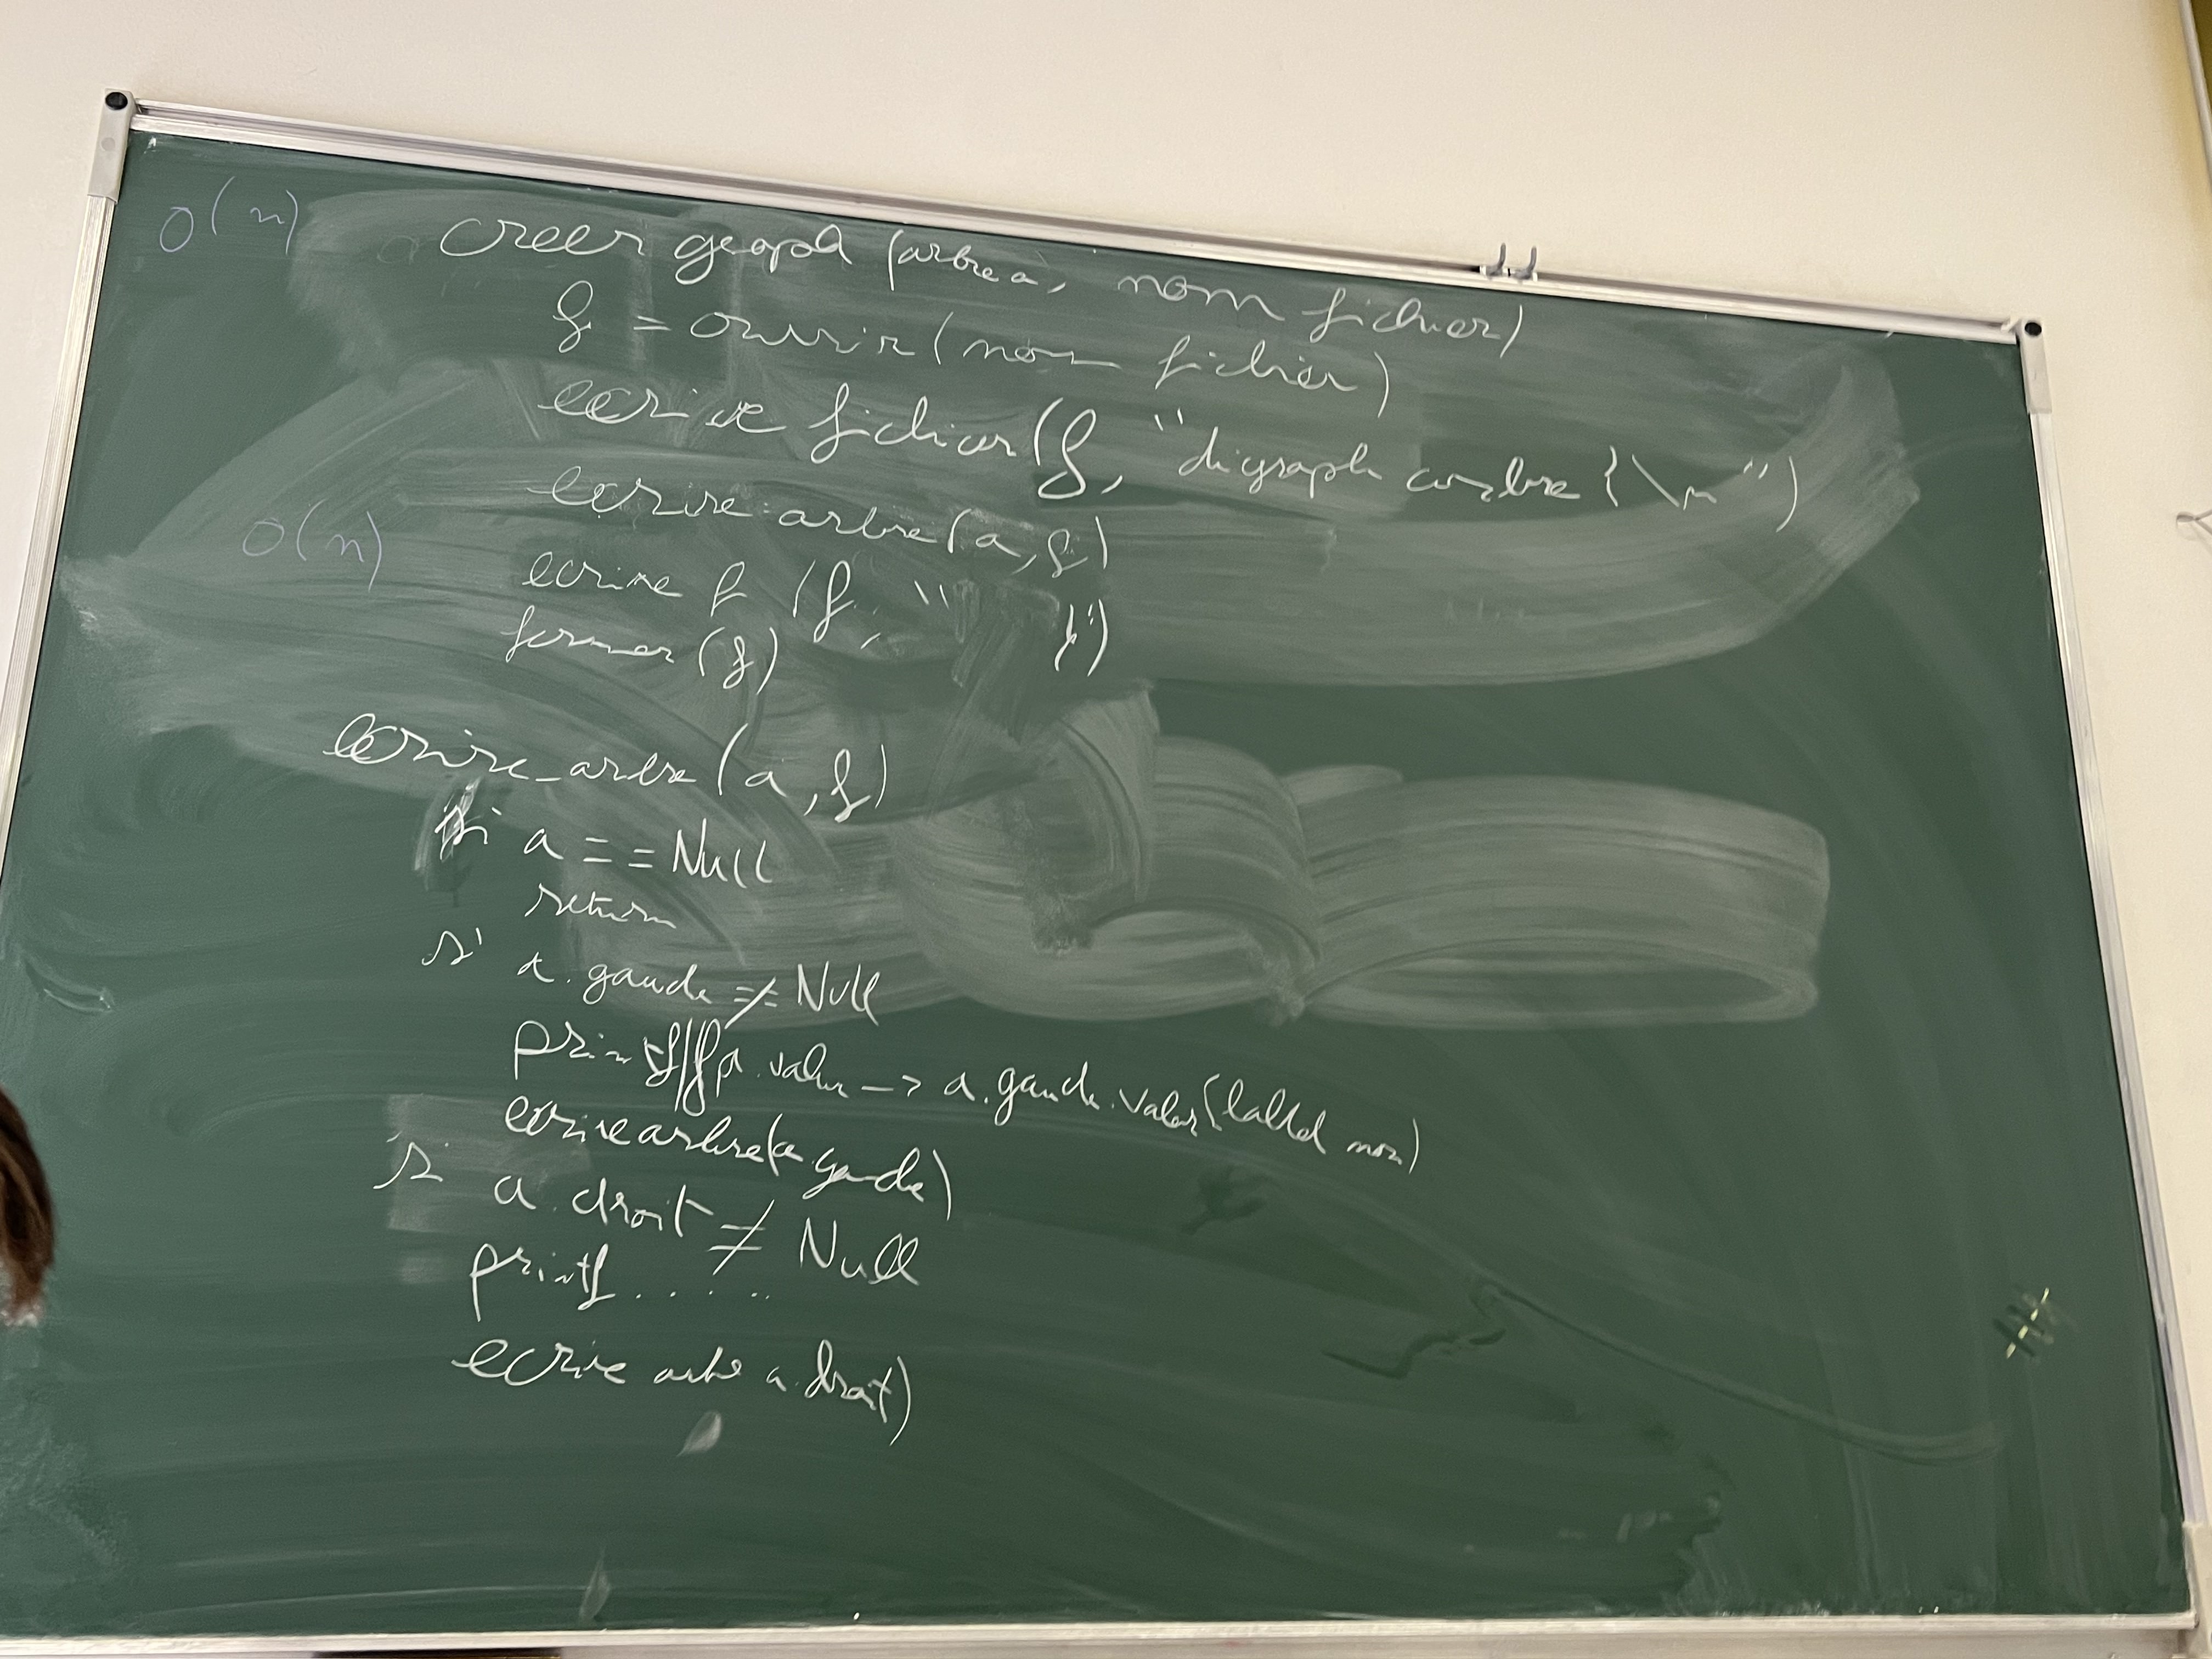 O(n)
creer graph (arbre a, nom fichier)
f = ouvrir(nom fichier)
ecrire fichier(f, "digraph arbre {\n")
ecrire arbre(a, f)
O(n)
ecrire f (f, " }")
fermer (f)
ecrire_arbre(a, f)
si a == Null
return
si a.gauche ≠ Null
printf(f a.valeur -> a.gauche.valeur (label non)
ecrire arbre(a gauche)
si a.droit ≠ Null
printf......
ecrire arbre a.droit)